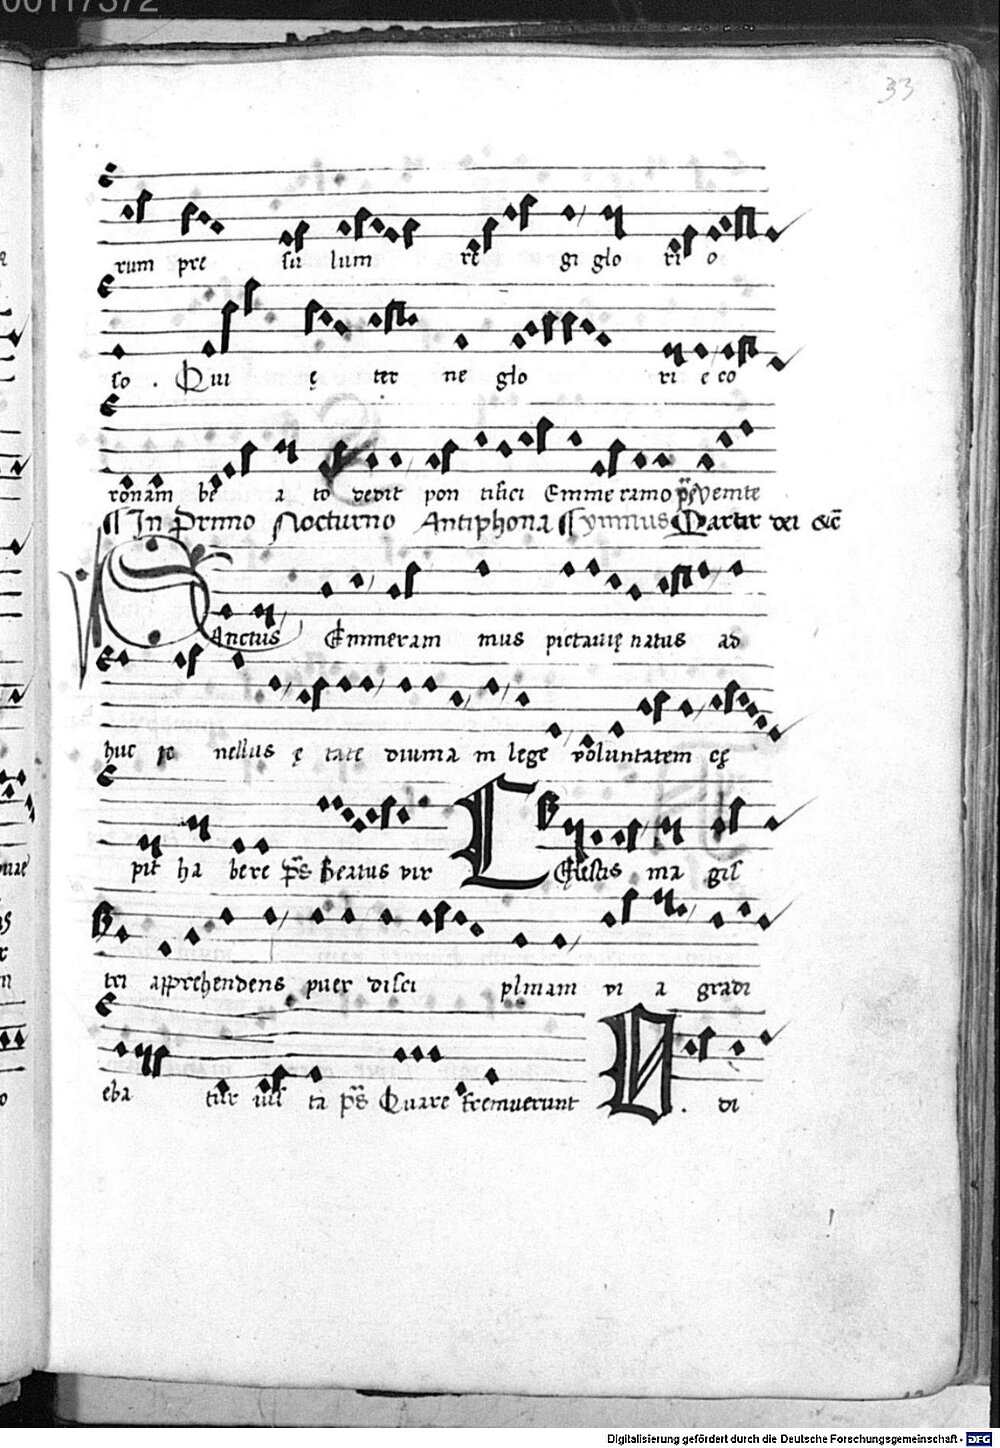 00117372
33
rum pre su lum re gi glo ri o
so . Qui ę ter ne glo ri e co
ronam be a to dedit pon tifici Emme ramo ps Venite
In Primo Nocturno Antiphona Ymnus Martir dei &c
Sanctus Emmeram mus pictauię natus ad
huc je nellus ę tate diuina in lege voluntatem cę
pit ha bere ps Beatus vir Cęlestis ma gis
tri apprehendens puer disci plinam vi a gradi
eba tur ius ta ps Quare fremuerunt D . di
Digitalisierung gefördert durch die Deutsche Forschungsgemeinschaft - DFG